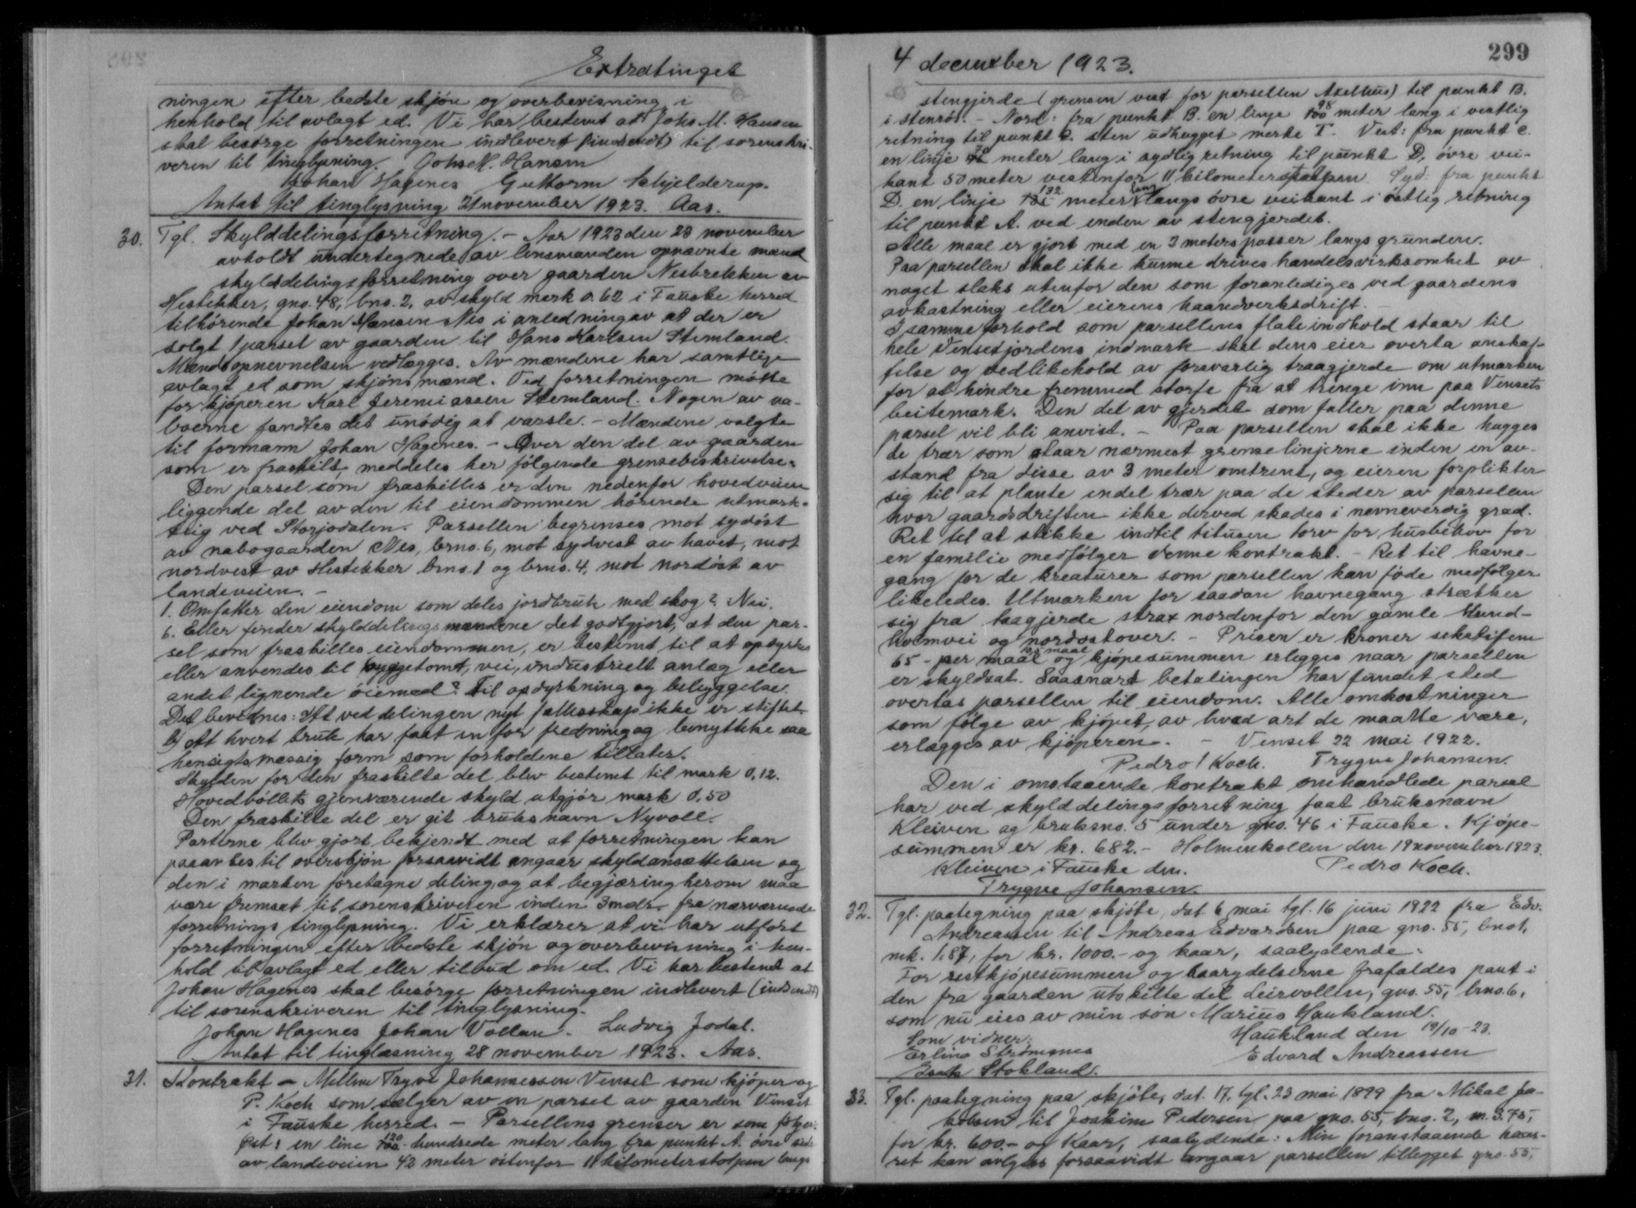 Extratinget
ningen efter bedste skjön og overbevisning i
henhold til avlagt ed. Vi har bestemt at Johs. M. Hansen
skal besörge forretningen indlevert (indsendt) til sorenskri-
veren til tinglysning. Johs M. Hansen
Johan Hagenes Guttorm Schjelderup.
Antat til tinglysning 21 november 1923. Aas.
30. Tgl. Skylddelingsforretning. - Aar 1923 den 23 november
avholdt undertegnede av lensmanden opnævnte mænd
skylddelingsforretning over gaarden Nesbrekken av
Hestekker, gno. 48, bno. 2, av skyld merk 0.62 i Fauske herred
tilhörende Johan Hansen Nes i anledning av at der er
solgt 1 parsel av gaarden til Hans Karlsen Stemland.
Mændsopnevnelsen vedlægges. Av mændene har samtlige
avlagt ed som skjönsmænd. Ved forretningen mötte
for kjöperen Karl Jeremiassen Stemland. Nogen av na-
boerne fandtes det unödig at varsle. - Mændene valgte
til formann Johan Hagenes. - Over den del av gaarden
som er fraskilt meddeles her fölgende grensebeskrivelse:
Den parsel som fraskilles er den nedenfor hovedveien
liggende del av den til eiendommen hörende utmark-
teig ved Storjodalen. Parsellen begrenses mot sydöst
av nabogaarden Nes, brno. 6, mot sydvest av havet, mot
nordvest av Hestekker brno. 1 og brno. 4, mot nordöst av
landeveien. -
1. Omfatter den eiendom som deles jordbruk med skog? Nei.
6. Eller finder skylddelingsmændene det godtgjort, at den par-
sel som fraskilles eiendommen, er bestemt til at opdyrkes
eller anvendes til byggetomt, vei, industrielt anlæg eller
andet lignende öiemed? Til opdyrkning og bebyggelse.
Det bevidnes: At ved delingen nyt fællesskap ikke er stiftet
b) at hvert bruk har faat en for fredning og benyttelse saa
hensigtsmæssig form som forholdene tillater.
Skylden for den fraskilte del blev bestemt til mark 0,12.
Hovedböllets gjenværende skyld utgjör mark 0,50
Den fraskilte del er git bruksnavn Nyvoll.
Parterne blev gjort bekjendt med at forretningen kan
paaankes til overskjön forsaavidt angaar skyldansættelsen og
den i marken foretagne deling, og at begjæring herom maa
være fremsat til sorenskriveren inden 3 mdr. fra nærværende
forretnings tinglysning. Vi erklærer at vi har utfört
forretningen efter bedste skjön og overbevisning i hen-
hold til avlagt ed eller tilbud om ed. Vi har bestemt at
Johan Hagenes skal besörge forretningen indlevert (indsendt)
til sorenskriveren til tinglysning.
Johan Hagenes Johan Vollan. Ludvig Jodal.
Antat til tinglæsning 28 november 1923. Aas.
31. Kontrakt - Mellem Trygve Johannessen Venset som kjöper og
P. Koch som sælger av en parsel av gaarden Venset
i Fauske herred. - Parsellens grenser er som fölger:
Öst: en line 120 hundrede meter lang fra punkt A. övre side
av landeveien 42 meter östenfor 11 kilometerstolpen langs
4 december 1923.
299
stengjerde (grensen vest for parsellen Axelhus) til punkt B.
i stenrös. - Nord: fra punkt B. en linje 98 meter lang i vestlig
retning til punkt C. sten udhugget merke T. Vest: fra punkt C.
en linje 70 meter lang i sydlig retning til punkt D. övre vei-
kant 50 meter vestenfor 11 kilometerstolpen. Syd: fra punkt
D. en linje 132 meter lang langs övre veikant i östlig retning
til punkt A. ved enden av stengjerdet.
Alle maal er gjort med en 3 meters passer langs grunden.
Paa parsellen skal ikke kunne drives handelsvirksomhet av
noget slaks utenfor den som foranlediges ved gaardens
avkastning eller eierens haandverksdrift.
I samme forhold som parsellens flateindhold staar til
hele Vensetjordens indmark skal dens eier overta anskaf-
felse og vedlikehold av forsvarlig traagjerde om utmarken
for at hindre fremmed storfe fra at trenge inn paa Vensets
beitemark. Den del av gjerdet som faller paa denne
parsel vil bli anvist. - Paa parsellen skal ikke hugges
de trær som staar nærmest grenselinjerne inden en av-
stand fra disse av 3 meter omtrent, og eieren forplikter
sig til at plante endel trær paa de steder av parsellen
hvor gaardsdriften ikke derved skades i nevneverdig grad.
Ret til at stikke indtil titusen torv for husbehov for
en familie medfölger denne kontrakt. - Ret til havne-
gang for de kreaturer som parsellen kan föde medfölger
likeledes. Utmarken for saadan havnegang strækker
sig fra taagjerde strax nordenfor den gamle Hund-
holmvei og nordostover. - Prisen er kroner sekstifem
65 - per maal og kjöpesummen erlegges naar parsellen
er skyldsat. Saasnart betalingen har fundet sted
overtas parsellen til eiendom. Alle omkostninger
som fölge av kjöpet, av hvad art de maatte være,
erlægges av kjöperen. - Venset 22 mai 1922.
Pedro Koch. Trygve Johansen.
Den i omstaaende kontrakt omhandlede parsel
har ved skylddelingsforretning faat bruksnavn
Kleiven og bruksno. 5 under gno. 46 i Fauske. Kjöpe-
summen er kr. 682. - Holmenkollen den 19 november 1923.
Kleiven i Fauske den. Pedro Koch.
Trygve Johansen.
32. Tgl. paategning paa skjöte, dat 6 mai tgl. 16 juni 1922 fra Edv.
Andreassen til Andreas Edvardsen paa gno. 55, bno 1,
mk. 1.87, for kr. 1000.- og kaar, saalydende:
For restkjöpesummen og kaarydelserne frafaldes pant i
den fra gaarden utskilte del Leirvollen, gno. 55, brno. 6,
som nu eies av min sön Marius Haukland.
Som vidner: Haukland den 19/10-23.
Erling Strömsnes Edvard Andreassen
Stokland.
33. Tgl. paategning paa skjöte, dat. 17. tgl. 23 mai 1899 fra Mikal Ja-
kobsen til Joakim Pedersen paa gno. 55, bno. 2, m. 3.75,
for kr. 600.- og kaar, saalydende: Min foranstaaende kaar-
ret kan avlyses forsaavidt angaar parsellen tillegget gno. 55,